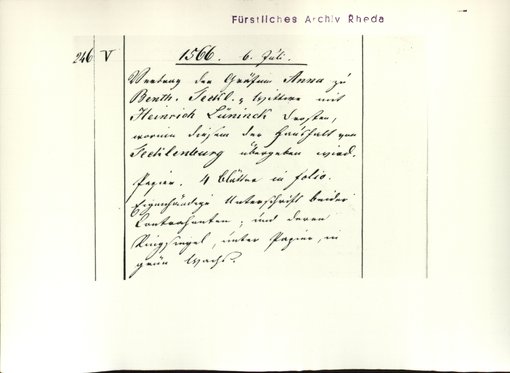 Fürstliches Archiv Rheda
246 V 1566. 6. Juli.
Vertrag der Gräfin Anna zu
Benth. Teckl., Wittwe mit
Heinrich Lüninck Drosten,
worin diesem der Haushalt von
Tecklenburg übergeben wird.
Papier. 4 Blätter in folio.
Eigenhändige Unterschrift beider
Contrahenten, und deren
Ringsiegel, unter Papier, in
grün Wachs.